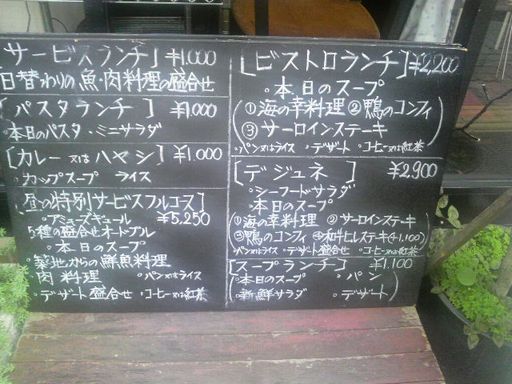 サービスランチ］¥1,000
日替わりの魚・肉料理の盛合せ
［パスタランチ］ ¥1,000
・本日のパスタ ・ミニサラダ
［カレー又はハヤシ］¥1,000
カップスープ ライス
昼の特別サービスフルコース］
・アミューズギュール ¥5,250
5種の盛合せオードブル
・本日のスープ
・築地からの鮮魚料理
肉料理 ・パン又はライス
・デザート盛合せ ・コーヒー又は紅茶
［ビストロランチ］¥2,200
・本日のスープ
①海の幸料理 ②鴨のコンフィ
③サーロインステーキ
・パン又はライス ・デザート ・コーヒー又は紅茶
［デジュネ］ ¥2,900
・シーフードサラダ
・本日のスープ
①海の幸料理 ②サーロインステーキ
③鴨のコンフィ ④和牛ヒレステーキ(+1,100)
・パン又はライス ・デザート盛合せ ・コーヒー又は紅茶
［スープランチ］ ¥1,100
・本日のスープ ・パン
・新鮮サラダ ・デザート